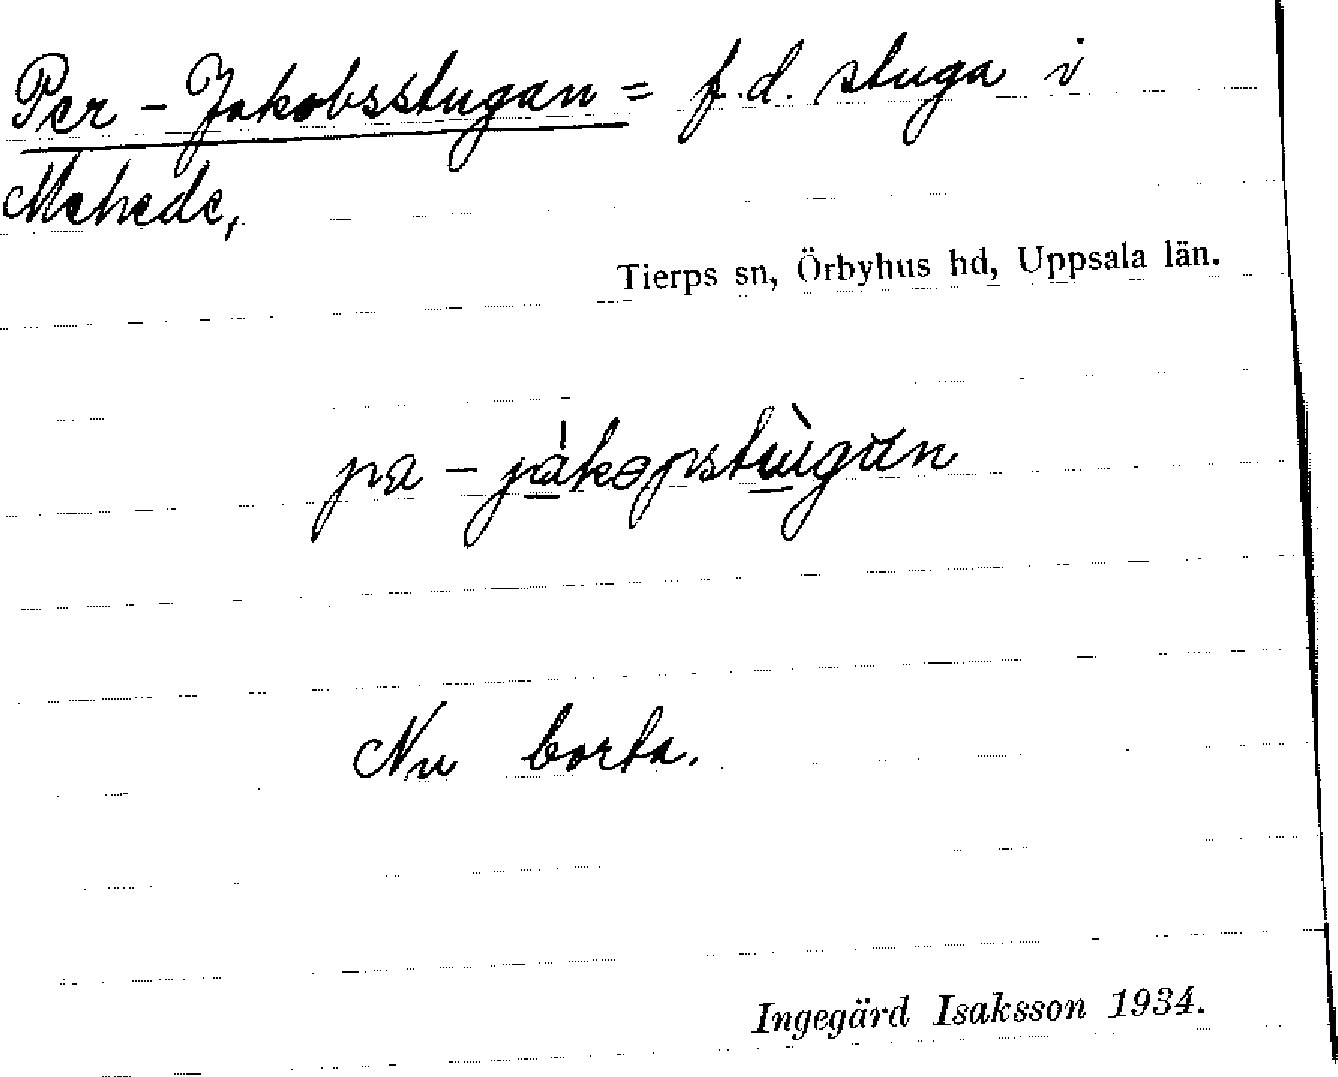 Per-Jakobsstugan = f.d. stuga i
Mehede,
Tierps sn, Örbyhus hd, Uppsala län.
pa-jàkɔpstùgăn
Nu borta.
Ingegärd Isaksson 1934.